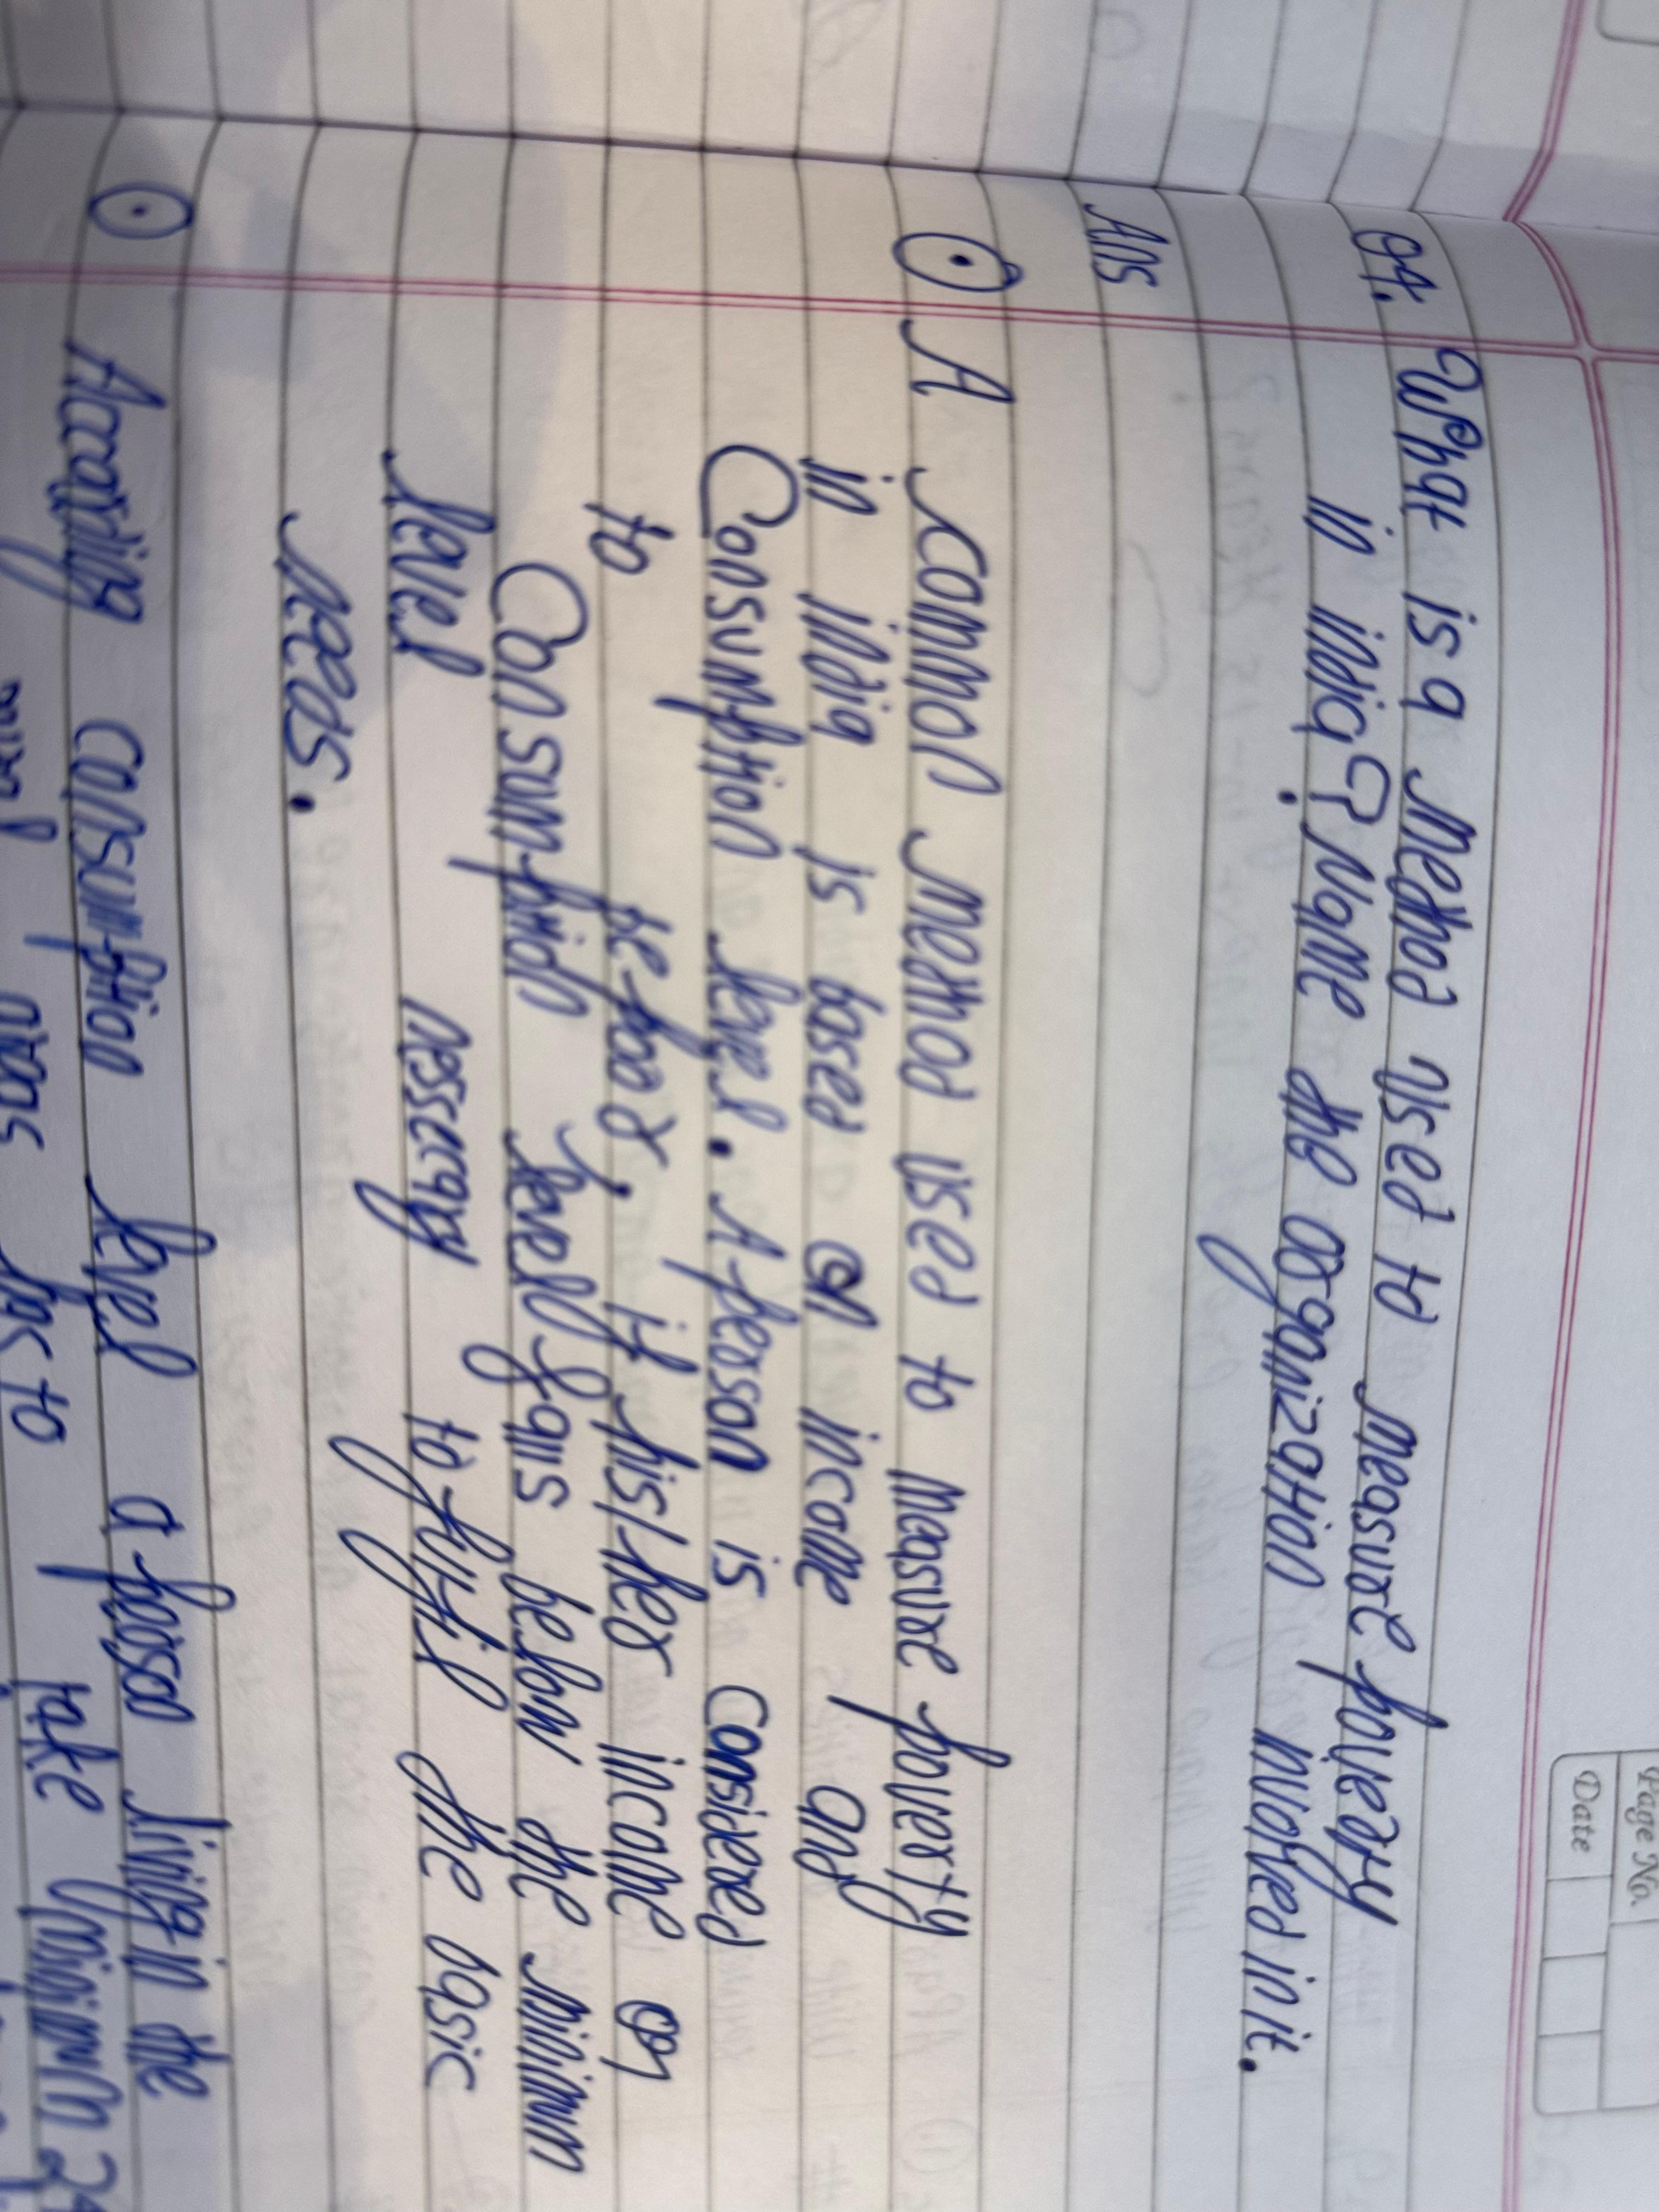 Page No.
Date
Q4. What is a Method used to measure poverty
in india? Name the organization involved in it.
Ans
A common method used to measure poverty
in india is based on income and
Consumption level. A person is considered
to be poor, if his/her income or
Consumption level falls below the minimum
level nessecary to fulfil the basic
needs.
According consumption level a person living in the
take minimum